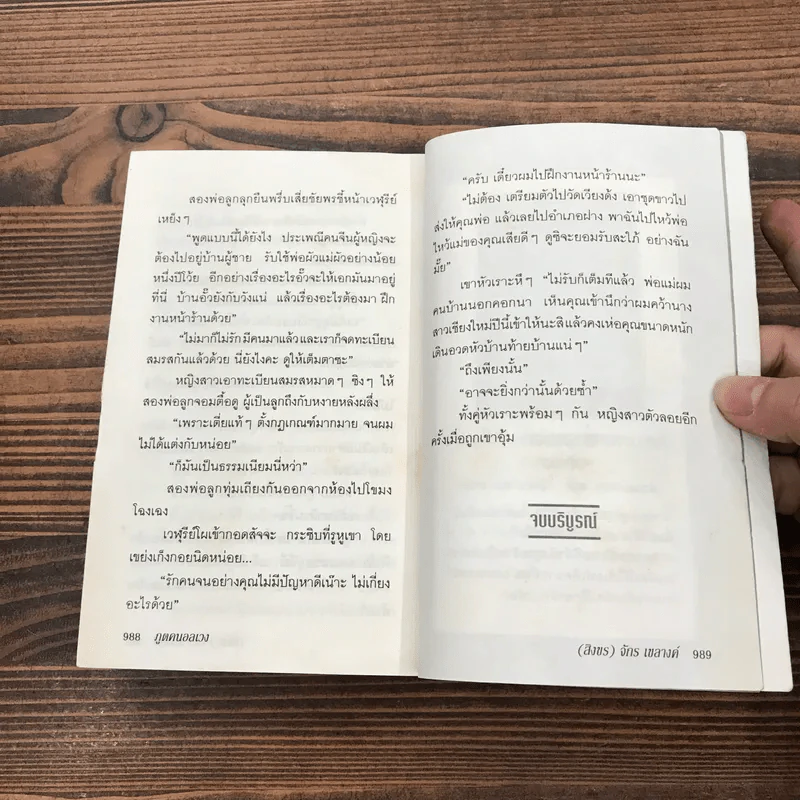 สองพ่อลูกลุกยืนพรึ่บเสี่ยชัยพรชี้หน้าเวฬุรีย์
เหยิงๆ
“พูดแบบนี้ได้ยังไง ประเพณีคนจีนผู้หญิงจะ
ต้องไปอยู่บ้านผู้ชาย รับใช้พ่อผัวแม่ผัวอย่างน้อย
หนึ่งปีโว้ย อีกอย่างเรื่องอะไรอั๊วจะให้เอกมันมาอยู่
ที่นี่ บ้านอั๊วยังกับวังแน่ แล้วเรื่องอะไรต้องมา ฝึก
งานหน้าร้านด้วย”
“ไม่มาก็ไม่รัก มีคนมาแล้วและเราก็จดทะเบียน
สมรสกันแล้วด้วย นี่ยังไงคะ ดูให้เต็มตาซะ”
หญิงสาวเอาทะเบียนสมรสหมาดๆ ซิงๆ ให้
สองพ่อลูกจอมตื๊อดู ผู้เป็นลูกถึงกับหงายหลังผลึ่ง
“เพราะเตี่ยแท้ๆ ตั้งกฎเกณฑ์มากมาย จนผม
ไม่ได้แต่งกับหน่อย”
“ก็มันเป็นธรรมเนียมนี่หว่า”
สองพ่อลูกทุ่มเถียงกันออกจากห้องไปโขมง
โฉงเฉง
เวฬุรีย์โผเข้ากอดสัจจะ กระซิบที่รูหูเขา โดย
เขย่งเก็งกอยนิดหน่อย...
“รักคนจนอย่างคุณไม่มีปัญหาดีเน๊าะ ไม่เกี่ยง
อะไรด้วย”
988 ภูตคนอลเวง
“ครับ เดี๋ยวผมไปฝึกงานหน้าร้านนะ”
“ไม่ต้อง เตรียมตัวไปวัดเวียงด้ง เอาชุดขาวไป
ส่งให้คุณพ่อ แล้วเลยไปอำเภอฝาง พาฉันไปไหว้พ่อ
ไหว้แม่ของคุณเสียดีๆ ดูซิจะยอมรับสะใภ้ อย่างฉัน
มั้ย”
เขาหัวเราะหึๆ “ไม่รับก็เต็มทีแล้ว พ่อแม่ผม
คนบ้านนอกคอกนา เห็นคุณเข้านึกว่าผมคว้านาง
สาวเชียงใหม่ปีนี้เข้าให้นะสิแล้วคงเห่อคุณขนาดหนัก
เดินอวดหัวบ้านท้ายบ้านแน่ๆ”
“ถึงเพียงนั้น”
“อาจจะยิ่งกว่านั้นด้วยซ้ำ”
ทั้งคู่หัวเราะพร้อมๆ กัน หญิงสาวตัวลอยอีก
ครั้งเมื่อถูกเขาอุ้ม
จบบริบูรณ์
(สิงขร) จักร เขลางค์ 989